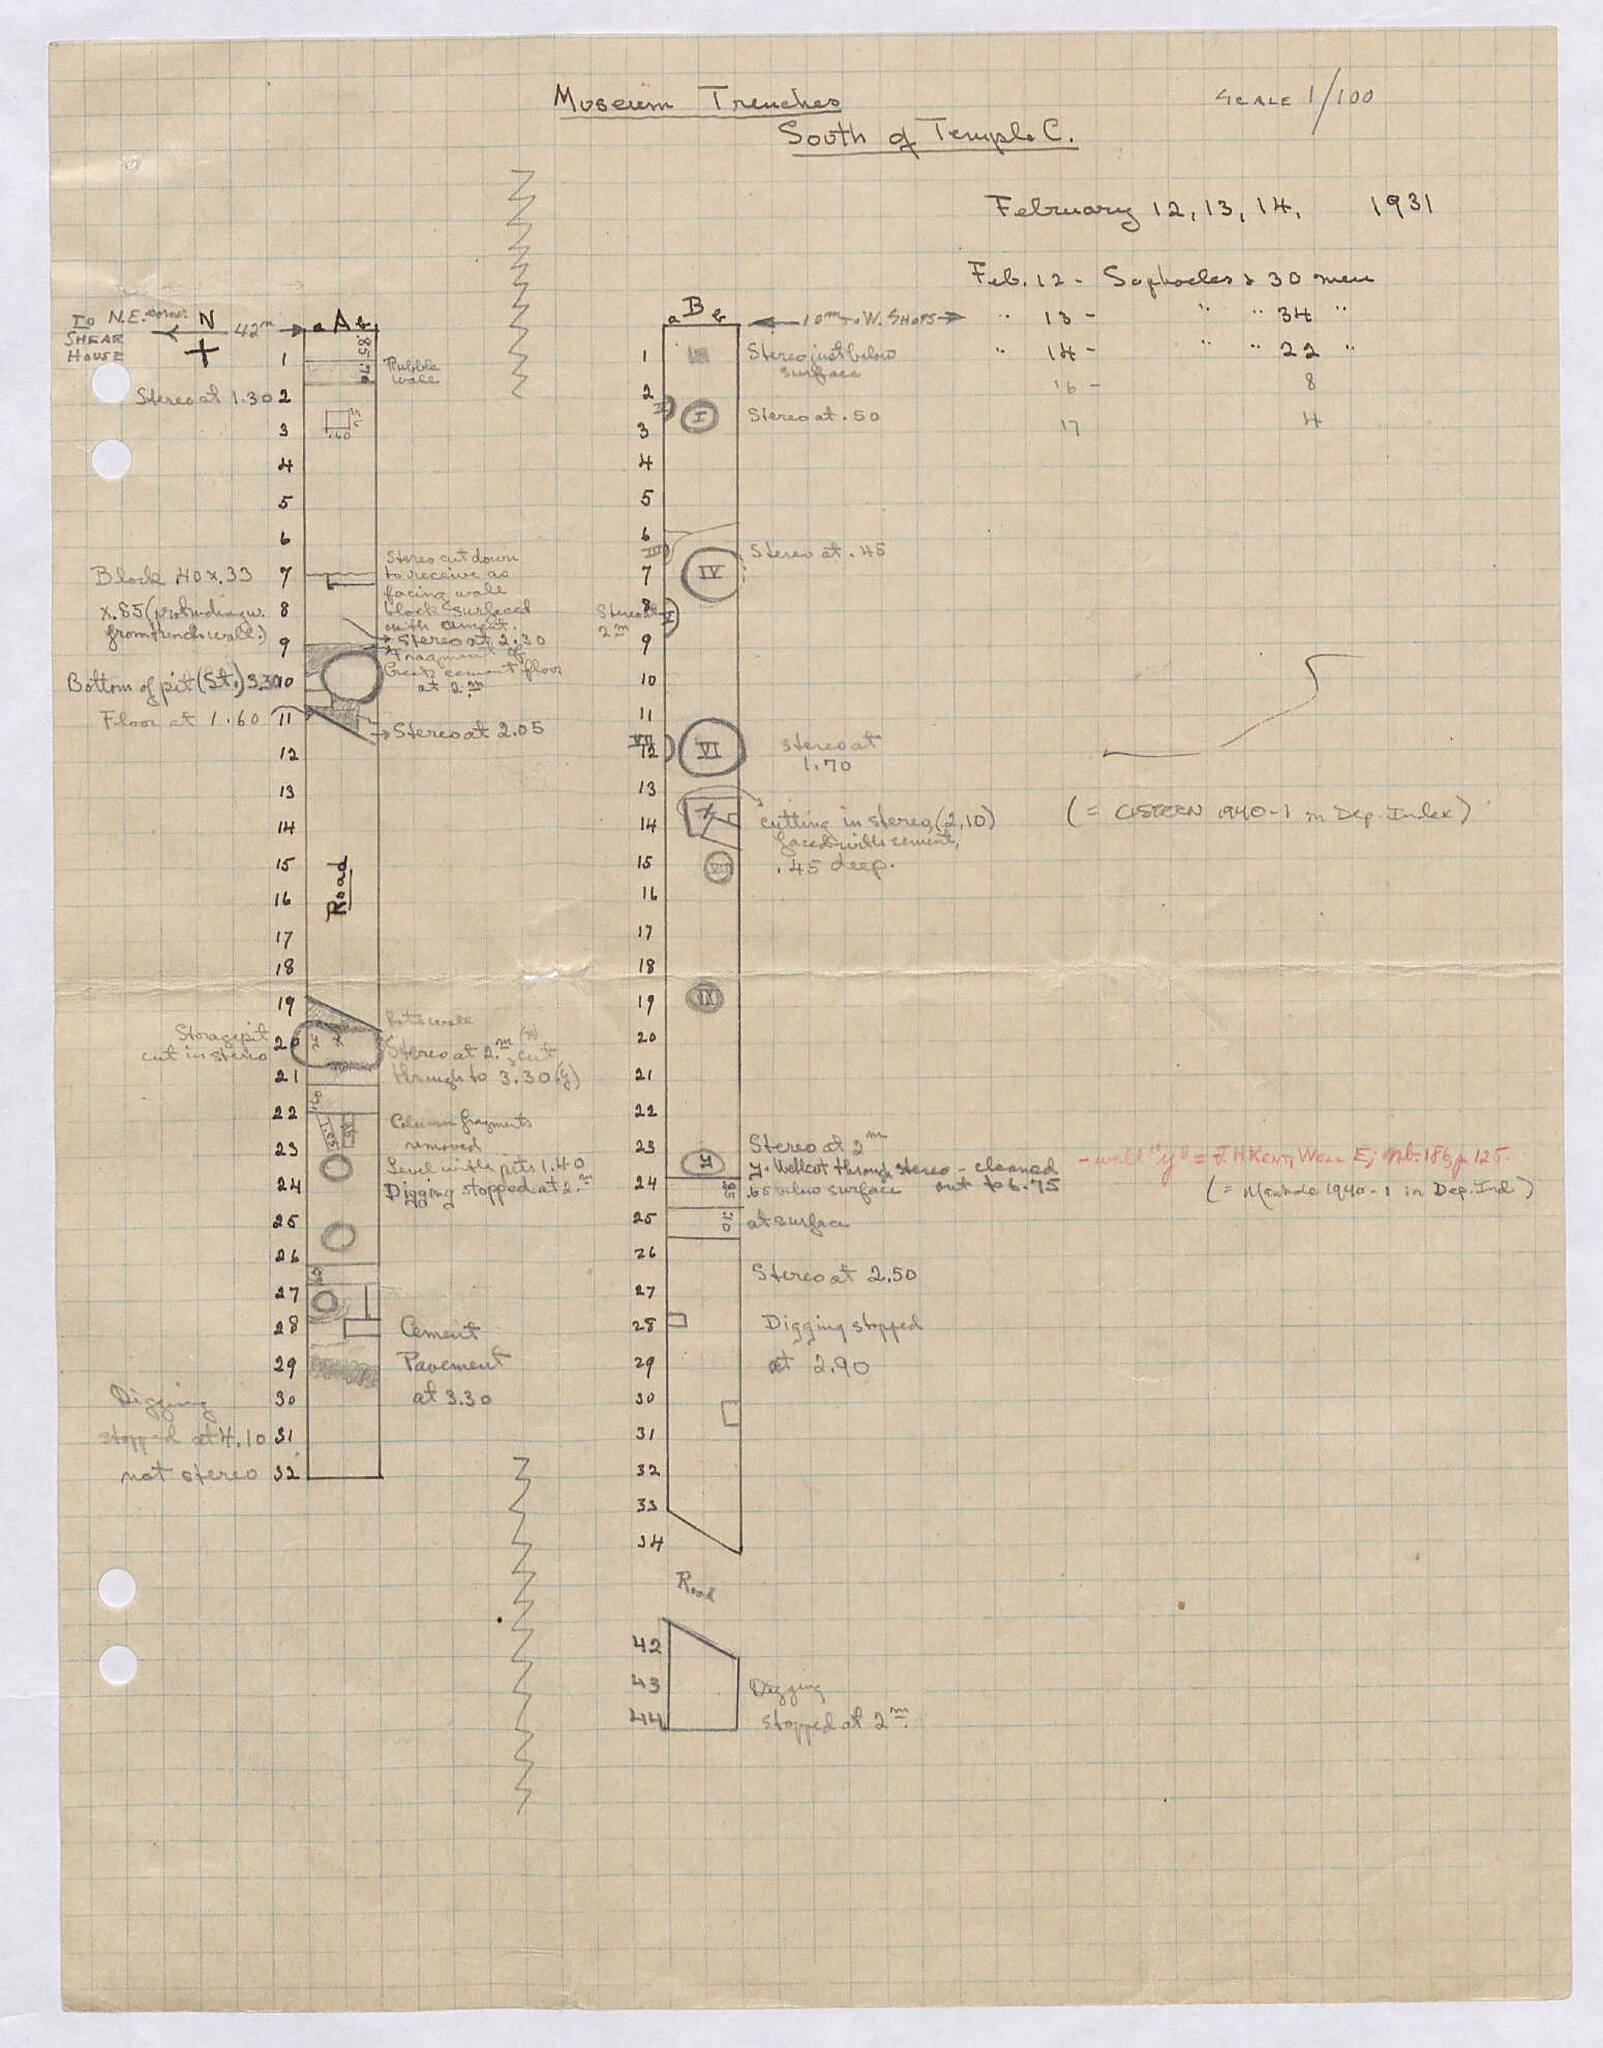 Museum Trenches
South of Temple C.
SCALE 1/100
February 12, 13, 14, 1931
Feb. 12 - Sophocles & 30 men
" 13 - " " 34 "
" 14 - " " 22 "
16 - 8
17 4
To N.E. corner N 42m a A b
SHEAR
HOUSE
a B b 10m to W. SHOPS
1
.85
.70
Rubble
wall
Stereo at 1.30 2
3
.60
4
5
6
Stereo cut down
to receive as
facing wall
block surfaced
with cement.
Block .40 x .33 7
x .85 (protruding w. 8
from trench wall.)
9
Stereo at 2.30
Fragment of
Greek cement floor
at 2.m
Bottom of pit (St.) 3.30 10
Floor at 1.60 11
Stereo at 2.05
12
13
14
15
16
Road
17
18
19
Storage pit 20
cut in stereo
Stereo at 2.m (x)
cut
through to 3.30 (y)
21
22
Column fragments
removed
23
Level with pits 1.40
24
Digging stopped at 2.m
25
26
27
28 Cement
29 Pavement
30 at 3.30
Digging
stopped at 4.10 31
not stereo 32
1 Stereo just below
surface
2
II I Stereo at .50
3
4
5
6
III Stereo at .45
7 IV
8 V
Stereo at
2m
9
10
11
VII 12 VI Stereo at
1.70
13
14 X cutting in stereo, (2,10)
faced with cement,
.45 deep.
(= CISTERN 1940-1 in Dep. Index)
15 VIII
16
17
18
19 IX
20
21
22
23 Stereo at 2m
y y. Well cut through stereo - cleaned
24 .65 below surface out to 6.75
- well "y" = J. H. Kent, Well E; Nb. 186, p 125.
(= Manhole 1940-1 in Dep. Ind.)
25 .70 at surface
26
Stereo at 2.50
27
28 Digging stopped
29 at 2.90
30
31
32
33
34
Road
42
43 Digging
44 stopped at 2m.